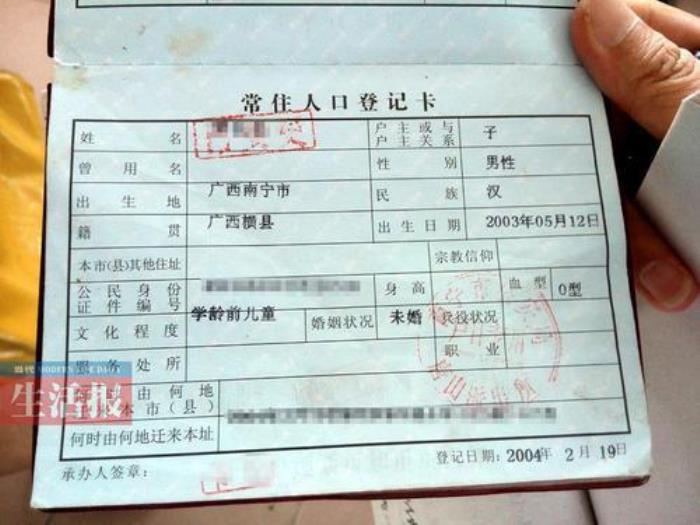 常住人口登记卡
姓名 户主或与户主关系 子
曾用名 性别 男性
出生地 广西南宁市 民族 汉
籍贯 广西横县 出生日期 2003年05月12日
本市(县)其他住址 宗教信仰
公民身份证件编号 身高 血型 O型
文化程度 学龄前儿童 婚姻状况 未婚 兵役状况
服务处所 职业
当代 MODERN LIFE DAILY
生活报
何时由何地
本市(县)
何时由何地迁来本址
承办人签章: 登记日期:2004年2月19日